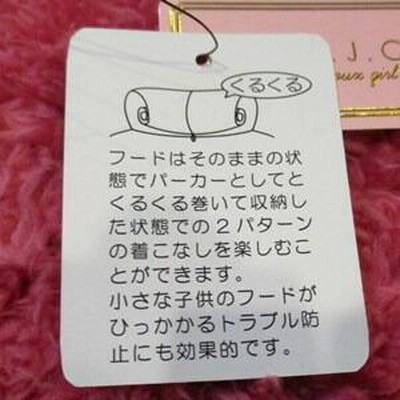 .J.C
oux girl
くるくる
フードはそのままの状
態でパーカーとしてと
くるくる巻いて収納し
た状態での2パターン
の着こなしを楽しむこ
とができます。
小さな子供のフードが
ひっかかるトラブル防
止にも効果的です。